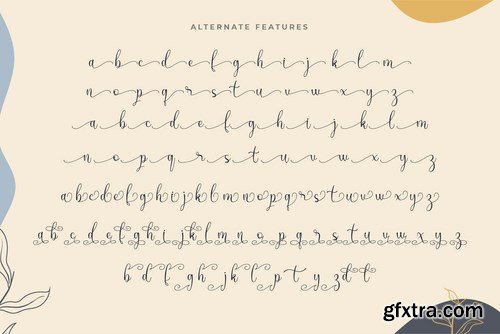 ALTERNATE FEATURES
a b c d e f g h i j k l m
n o p q r s t u v w x y z
a b c d e f g h i j k l m
n o p q r s t u v w x y z
a b c d e f g h i j k l m n o p q r s t u v w x y z
a b c d e f g h i j k l m n o p q r s t u v w x y z
b d f g h j k l p t y z d t
gfxtra.com